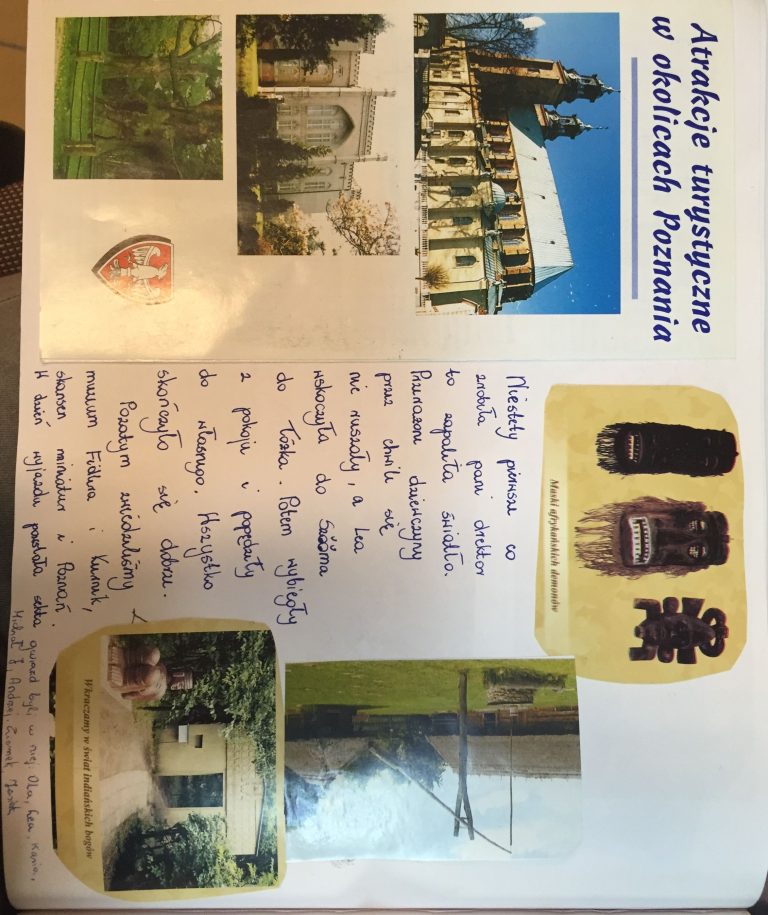 Atrakcje turystyczne
w okolicach Poznania
Maski afrykańskich demonów
Niestety pierwsze co
zrobiła pani direktor
to zapaliła światło.
Przerażone dziewczyny
przez chwile się
nie ruszały, a Lea
wskoczyła do
do łóżka. Potem wybiegły
z pokoju i popędzały
do własnego. Wszystko
skończyło się dobrze.
Pozatym zwiedzaliśmy
muzeum Fidlera i Kurnik,
skansen miniatur i Poznań.
W dzień wyjazdu powstała sekta
gwiazd byli w niej: Ola, Lea, Kania,
Michał J, Andrzej, Ziomek, Jasiek
Wkraczamy w świat indiańskich bogów